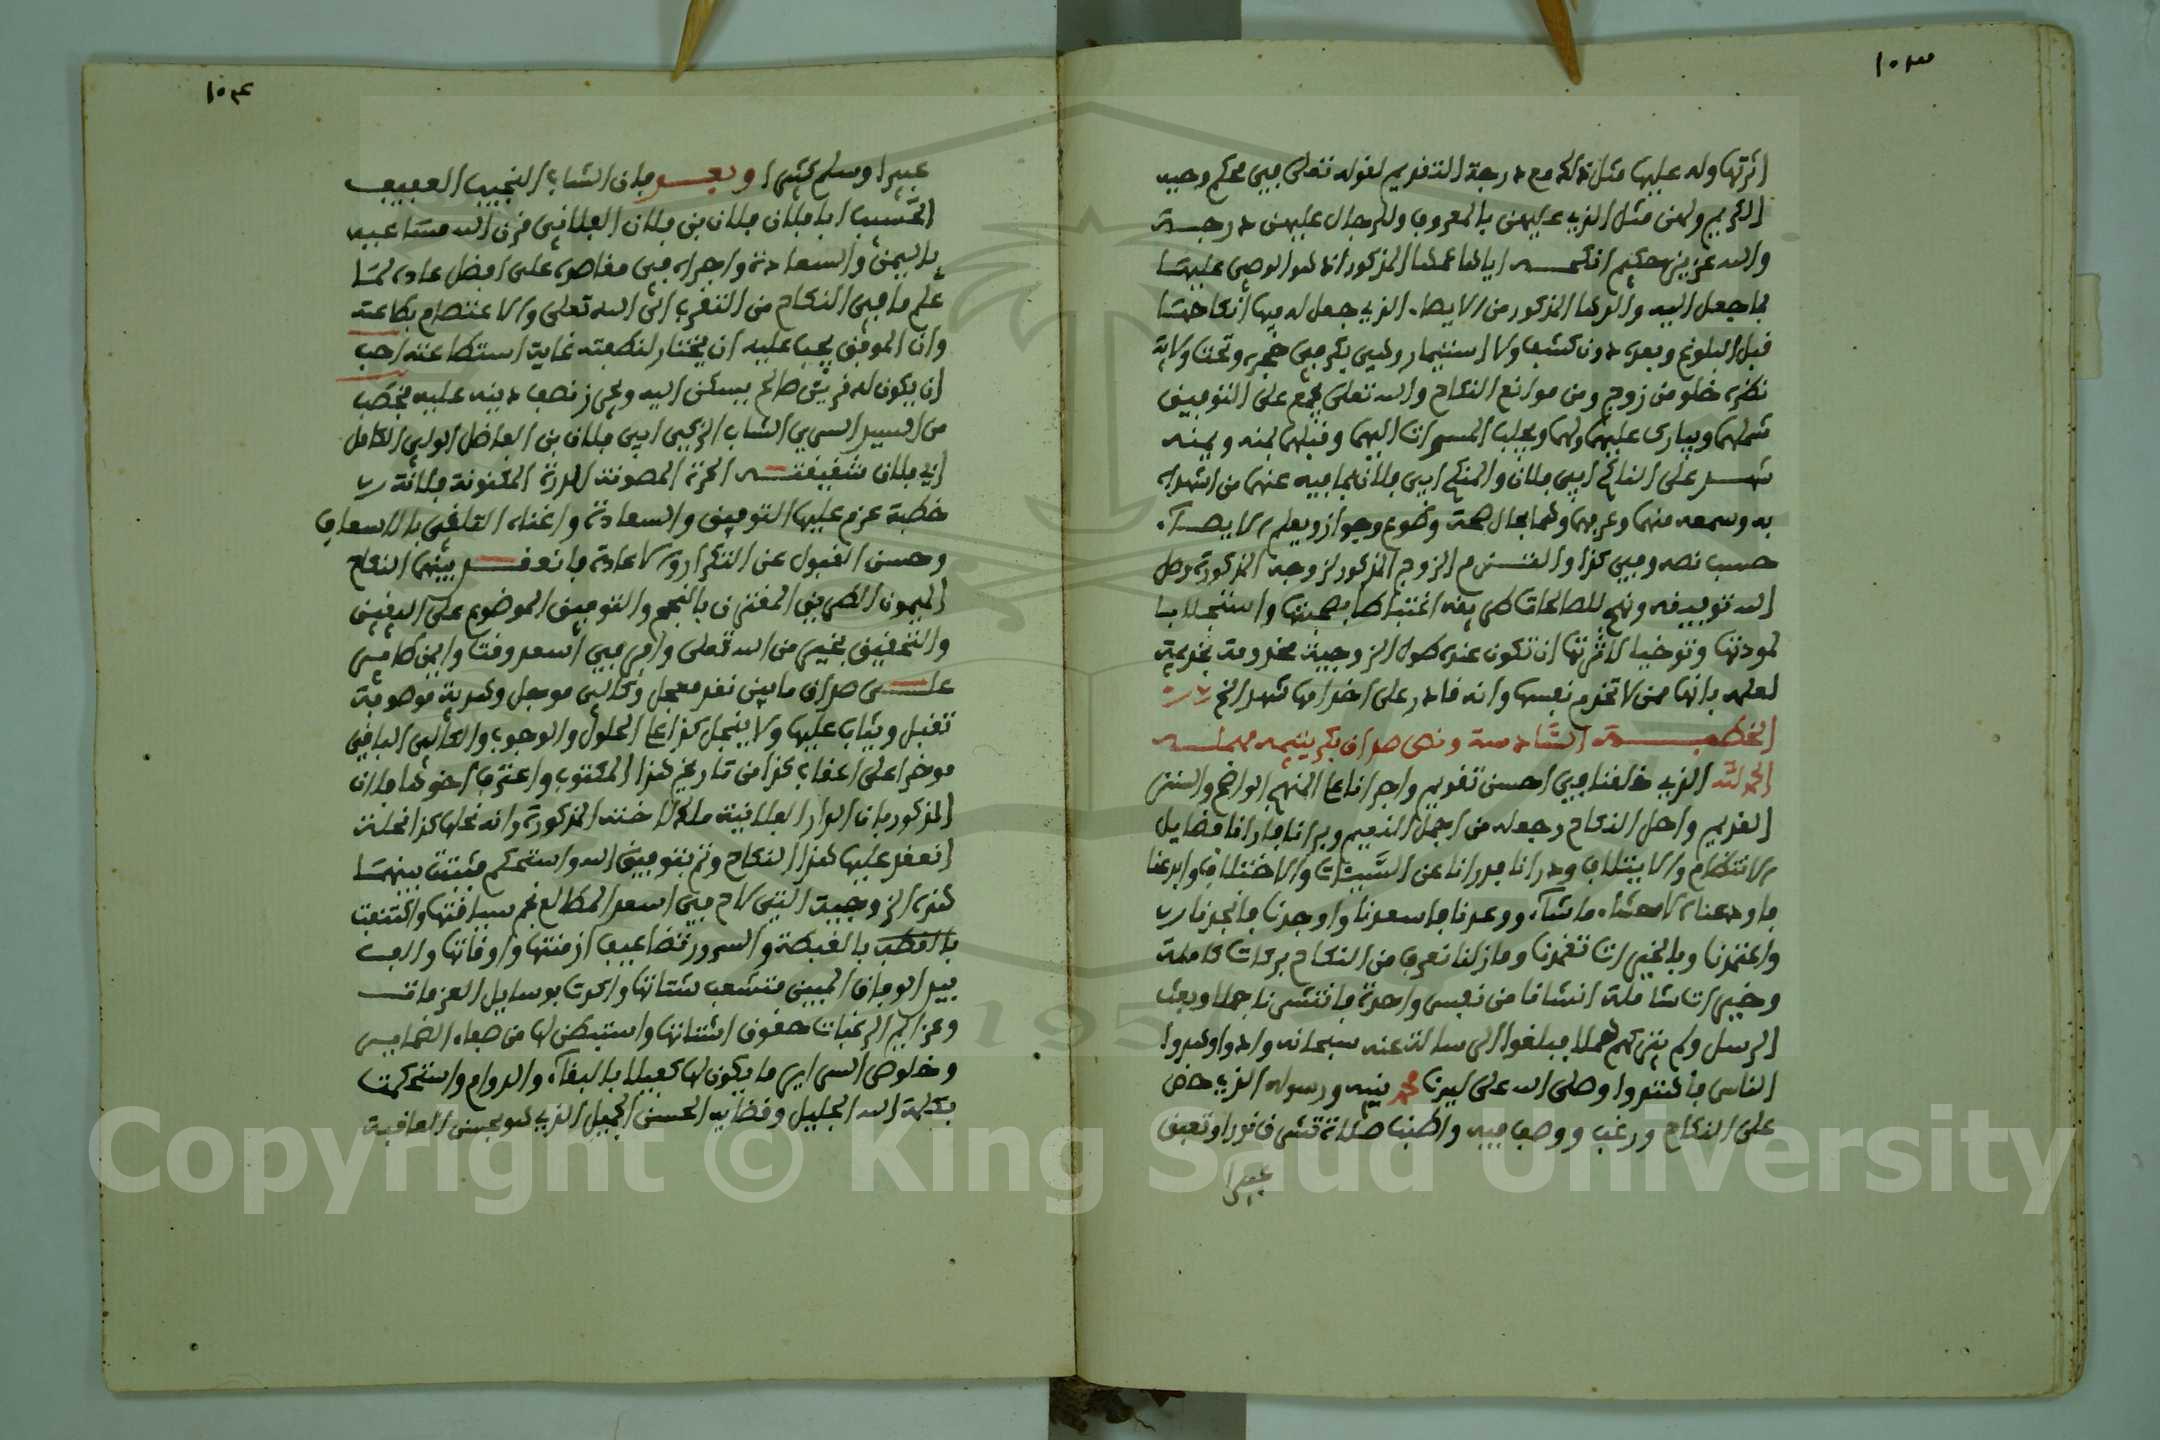 ١٠٣
اثرتها وله عليها مثل ذلك مع درجة التقديم لقوله تعلى في محكم وحيه
الكريم ولهن مثل الذي عليهن بالمعروف وللرجال عليهن درجة
والله عزيز حكيم انكحه اياها عمها المذكور اذ هو الوصي عليها
بما جعل اليه والدها المذكور من الايصاء الذي جعل له فيها انكاحها
قبل البلوغ وبعده دون كشف ولا استيمار وهي بكر في حجره وتحت ولاية
نظره خلو من زوج ومن موانع النكاح والله تعلى يجمع على التوفيق
شملهما ويبارك عليهما ولهما ويجلب المسرات اليهما وقبلهما بمنه ويمنه
شهد على الناكح ابي فلان والمنكح ابي فلان بما فيه عنهما من اشهداه
به وسمعه منهما وعرفهما وهما بحال صحة وطوع وجواز ويعلم الايصاء
حسب نصه وفي كذا والتزم الزوج المذكور لزوجه المذكورة وصل
الله توفيقه ونهج للصالحات طريقه اغتباطا بصحبتها واستجلابا
لمودتها وتوخيا لاثرتها ان تكون عنده طول الزوجية مخدومة بخديمة
لعلمه بانها ممن لا تخدم نفسها وانه قادر على اخدامها شهد الخ
الخطبة السادسة ونص صداق بكر يتيمة مهملة
الحمد لله الذي خلقنا في احسن تقويم واجرانا على المنهج الواضح والسنن
القديم واحل النكاح وجعله من اجمل الذميم وبرانا فارانا فضايل
الانتظام والايتلاف ودرانا فدرانا عن الشتات والاختلاف وابدعنا
فاودعنا الامشاء ما شاء ووعدنا فاسعدنا واوجدنا فانجدنا
واعتمدنا وبالخيرات تغمدنا وما زلنا نعرف من النكاح بركات كاملة
وخيرات شاملة انشانا من نفس واحدة فانتشرنا جملا وبعث
الرسل ولم يتركهم هملا فبلغوا الرسالة عنه سبحانه وادوا وهدوا
الناس فاهتدوا وصلى الله على سيدنا محمد نبيه ورسوله الذي حض
على النكاح ورغب ووصف فيه واطنب صلاة تشرق نورا وتعبق
عبيرا
١٠٤
عبيرا وسلم كثيرا وبعد فان الشاب النجيب العفيف
الحسيب ابا فلان فلان بن فلان الفلاني قرن الله مساعيه
باليمن والسعادة واجراه في مقاصده على افضل عاده لما
علم ما في النكاح من التقرب الى الله تعلى والاعتصام بطاعته
وان الموفق يجب عليه ان يختار لنطفته غاية استطاعته احب
ان يكون له قرين صالح يسكن اليه ويحرز نصف دينه عليه فخطب
من السيد السري الشاب الزكي ابي فلان بن الفاضل الولي الكامل
ابي فلان شقيقته الحرة المصونة الدرة المكنونة فلانة
خطبة عزم عليها التوفيق والسعادة واغناه التلقي بالاسعاف
وحسن القبول عن التكرار والاعادة فانعقد بينهما النكاح
الميمون الطريق المقترن بالنجح والتوفيق الموضوع على اليقين
والتحقيق بخير من الله تعلى وامره في اسعد وقت وايمن طامس
على صداق ما بين نقد معجل وكالئ موجل وهدية موصوفة
تقبل ويثاب عليها ولا يتجل كذا على الحلول والوجوب والكالئ الباقي
موخرا على اعقاب كذا من تاريخ هذا المكتوب واعترف اخوها فلان
المذكور بان الدار الفلانية ملك لاخته المذكورة وانه نحلها كذا نحلة
انعقد عليها هذا النكاح وتم بتوفيق الله واستحكم فثبتت بينهما
هذه الزوجية التي لاح في اسعد المطالع نجم سياقتها واكتنفت
بالقطب بالغبطة والسرور تضاعيف ازمنتها واوقاتها والف
بيد الوفاق المبين متشعب شتاتها واكدت بوسايل العزمات
وعزايم الرغبات حقوق اشتاتها واستبطن لها من صفاء الضماير
وخلوص السراير ما يكون لها كفيلا بالبقاء والدوام واستحكمت
بكلمة الله الجليل وقضايه الحسن الجميل الذي هو بحسن العافية
Copyright © King Saud University
1957